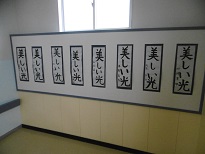 美しい光
美しい光
美しい光
美しい光
美しい光
美しい光
美しい光
美しい光